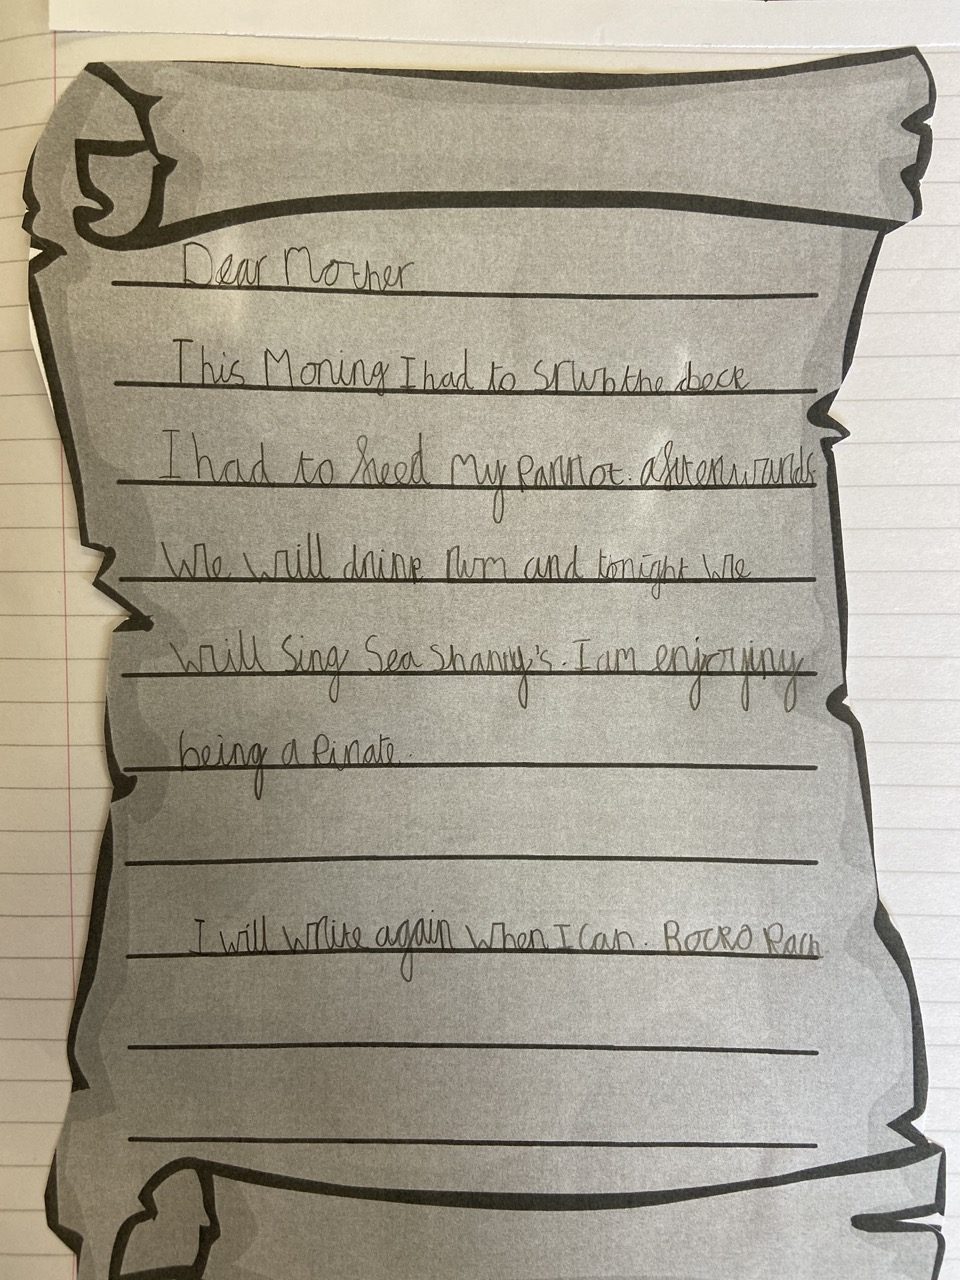 Dear Mother
This Moning I had to srub the deck
I had to feed my parrot. afterwards
We will drink rum and tonight we
will sing Sea shanty's. I am enjoying
being a Pirate.
I will write again when I can.